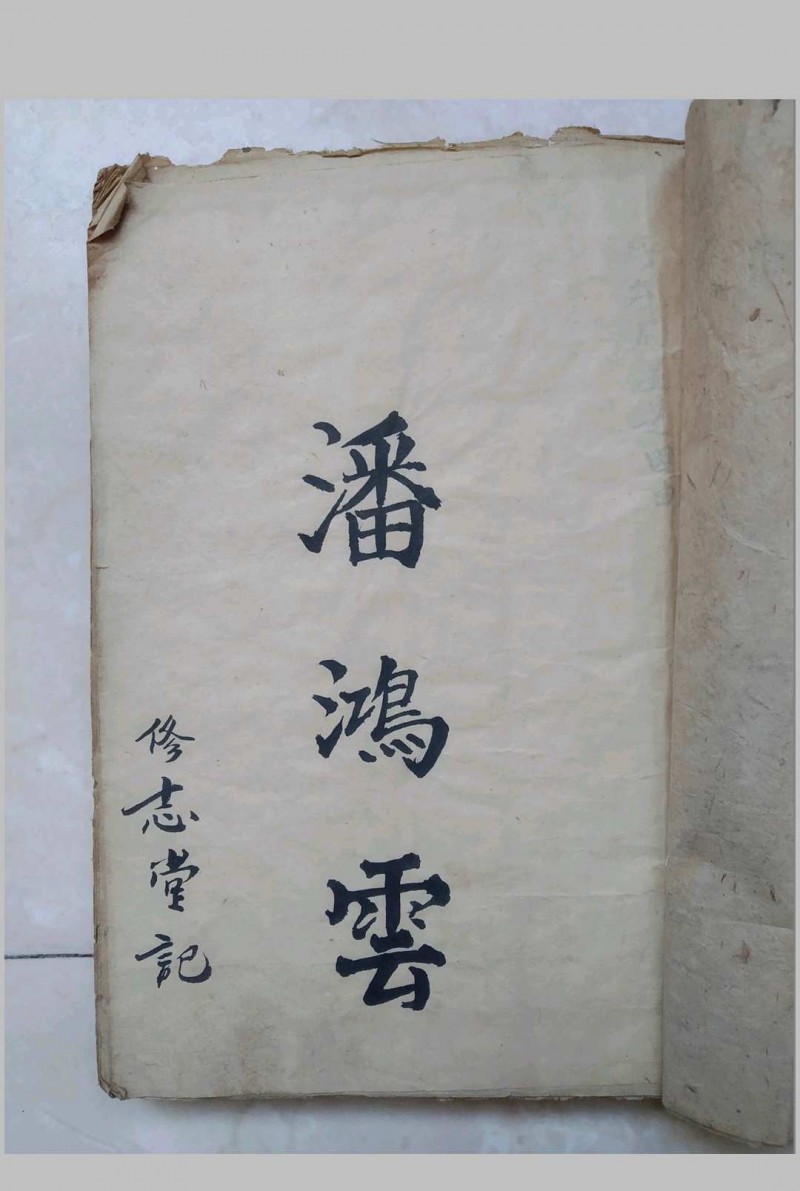 潘鴻雲
修志堂記